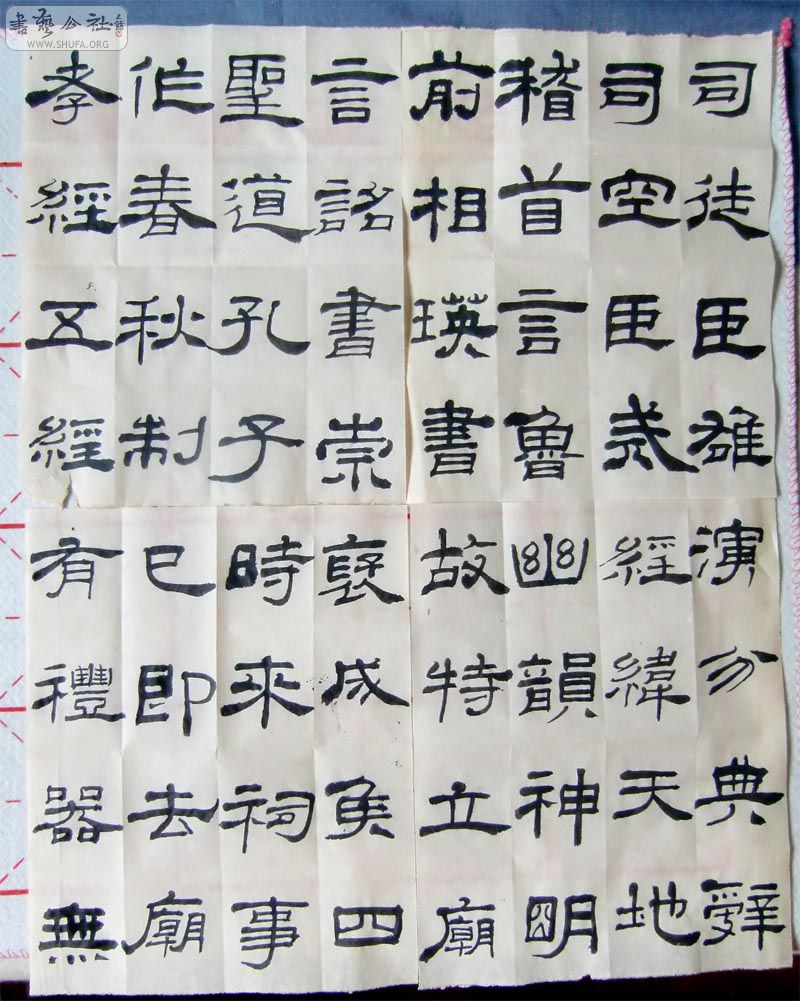 書藝公社
WWW.SHUFA.ORG
司徒臣雄
司空臣戒
稽首言魯
前相瑛書
言詔書崇
聖道孔子
作春秋制
孝經五經
演分典辭
經緯天地
幽韻神明
故特立廟
褒成侯四
時來祠事
已即去廟
有禮器無